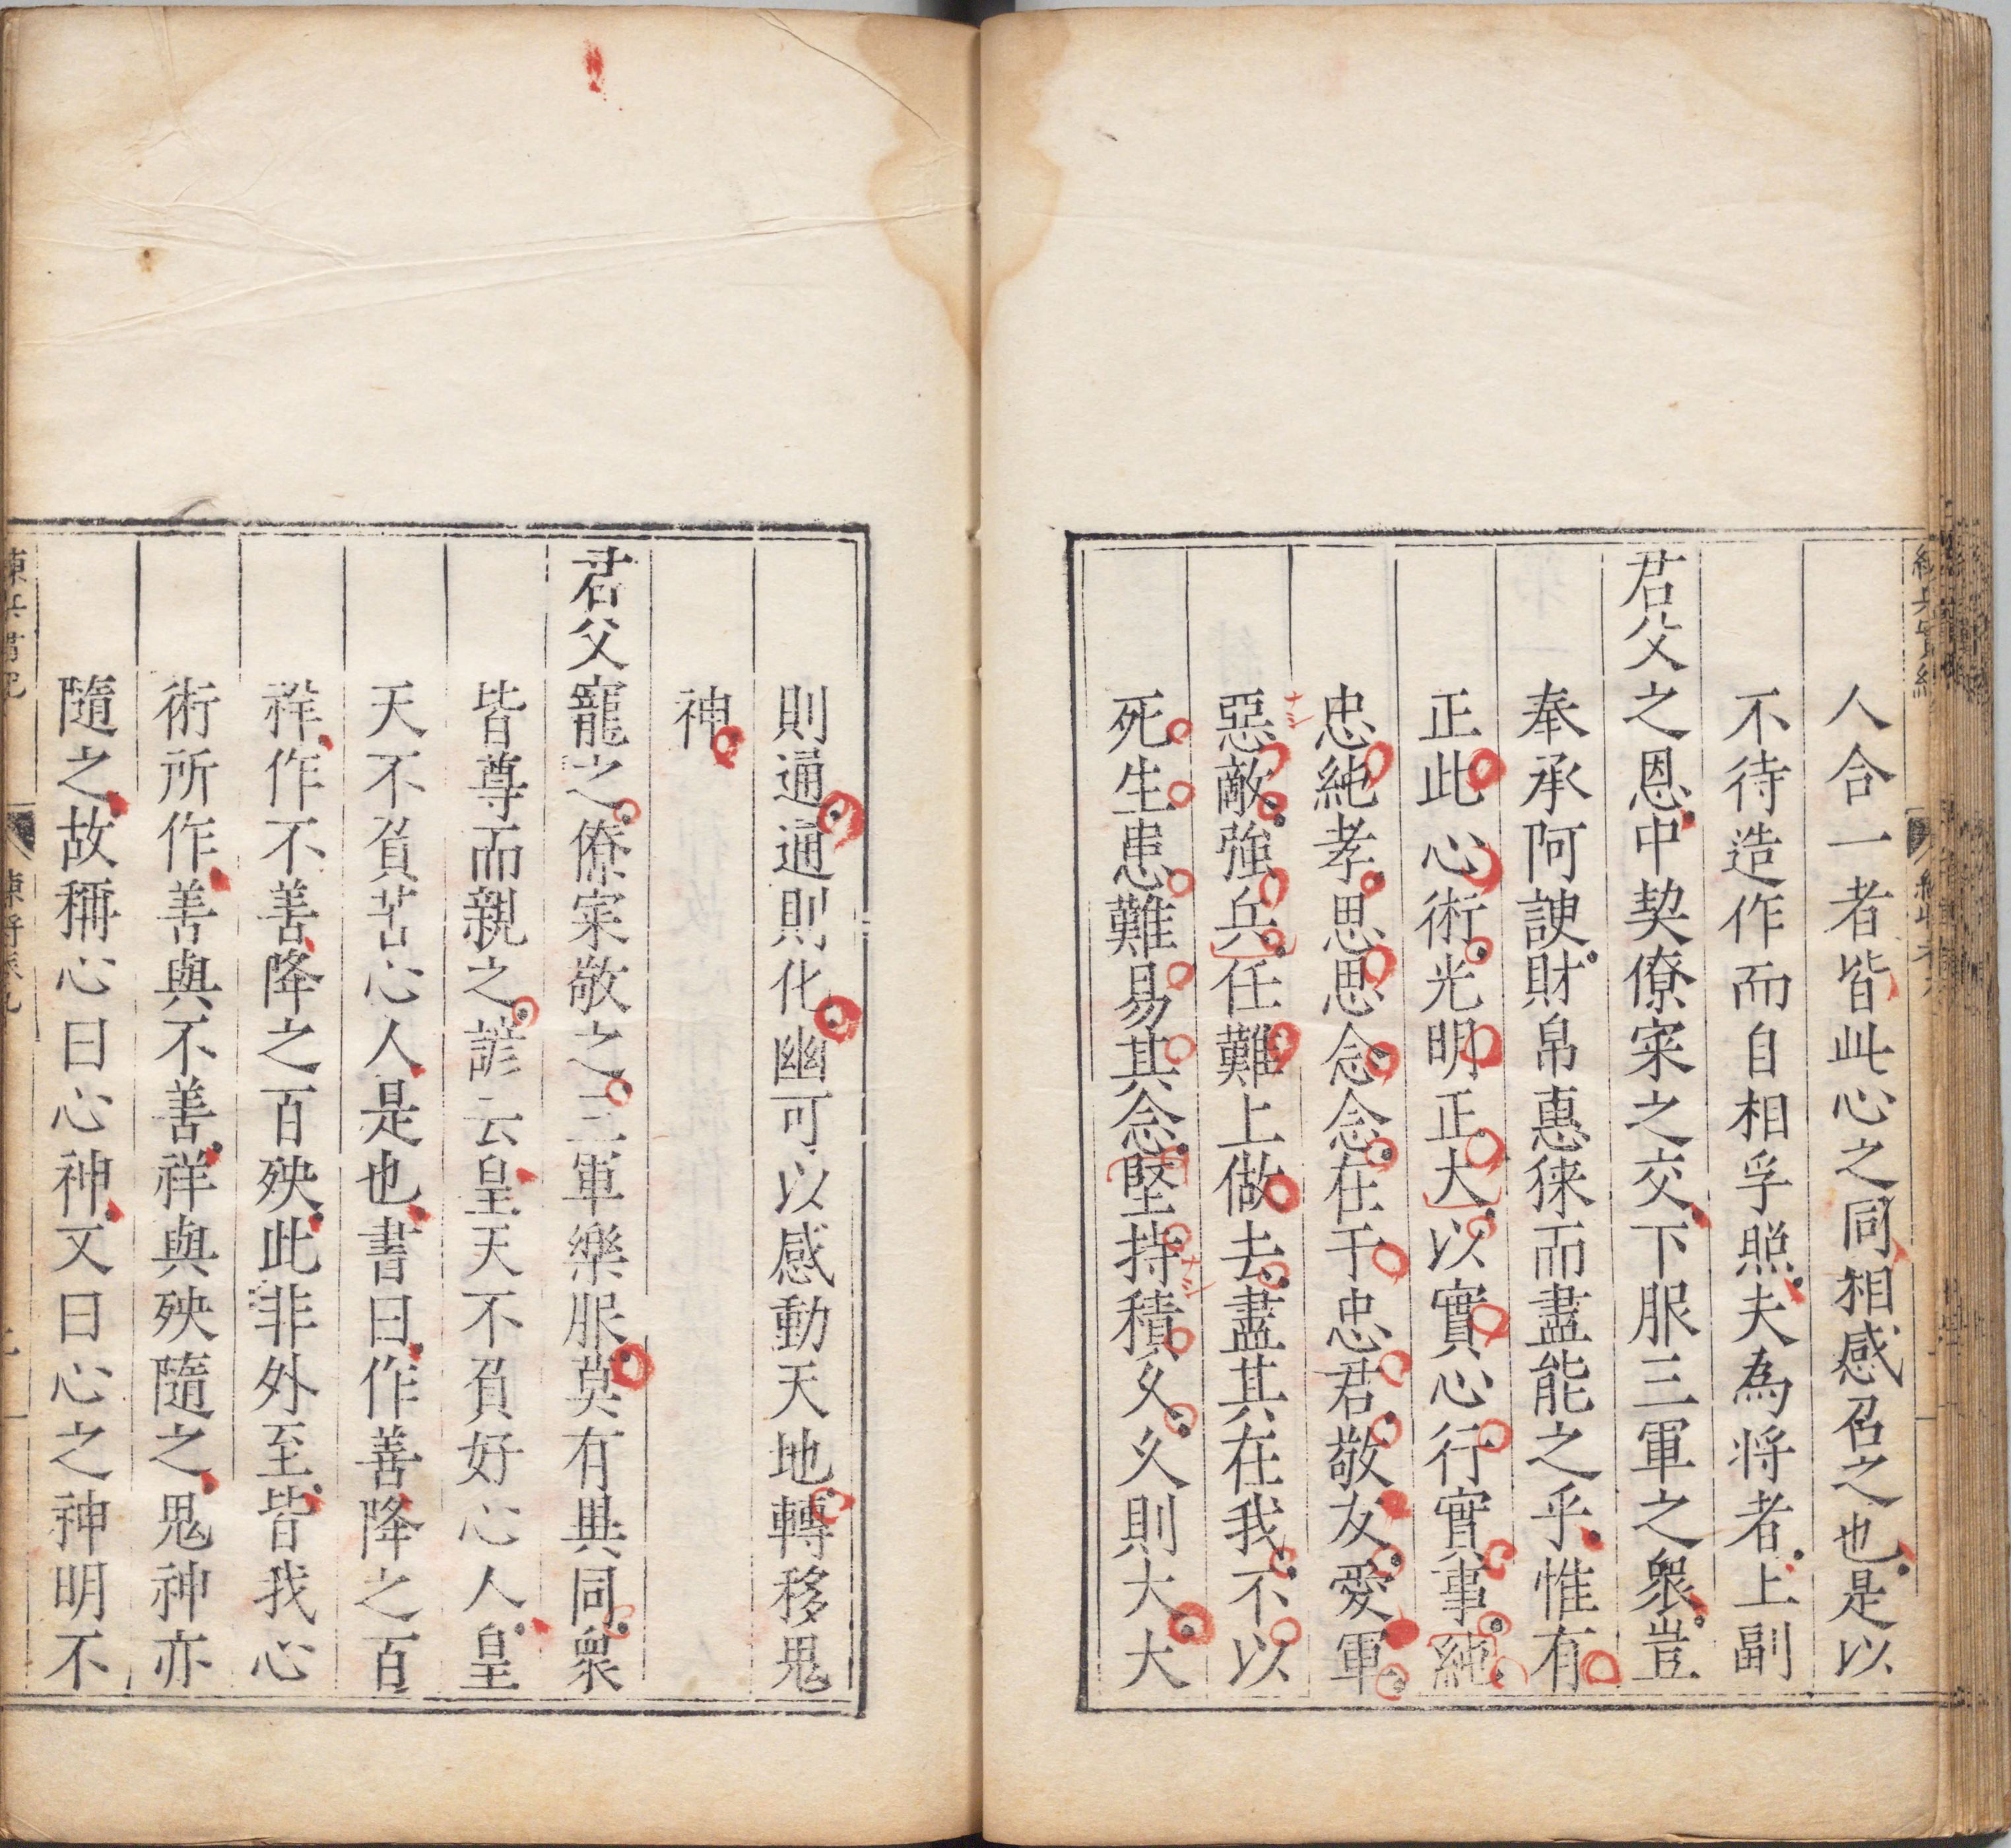 人合一者皆此心之同相感召之也是以
不待造作而自相孚照夫為將者上副
君父之恩中契僚寀之交下服三軍之衆豈
奉承阿諛財帛惠徠而盡能之乎惟有
正此心術光明正大以實心行實事純
忠純孝思思念念在于忠君敬友愛軍
惡敵強兵任難上做去盡其在我不以
死生患難易其念堅持積久久則大大
則通通則化幽可以感動天地轉移鬼
神
君父寵之僚寀敬之三軍樂服莫有異同衆
皆尊而親之諺云皇天不負好心人皇
天不負苦心人是也書曰作善降之百
祥作不善降之百殃此非外至皆我心
術所作善與不善祥與殃隨之鬼神亦
隨之故稱心曰心神又曰心之神明不